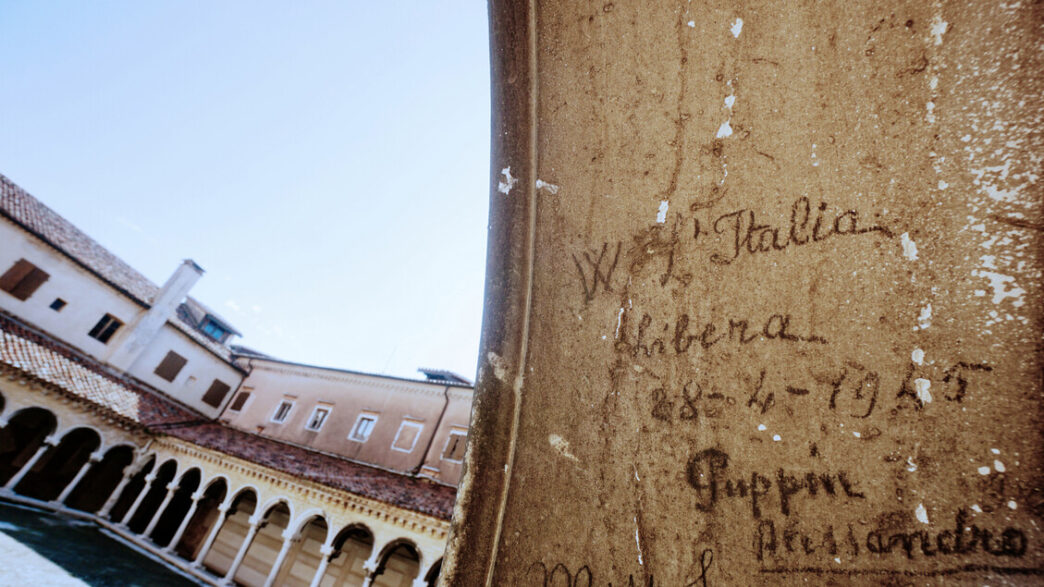 W L'Italia
Libera
28-4-1945
Puppin
Alessandro